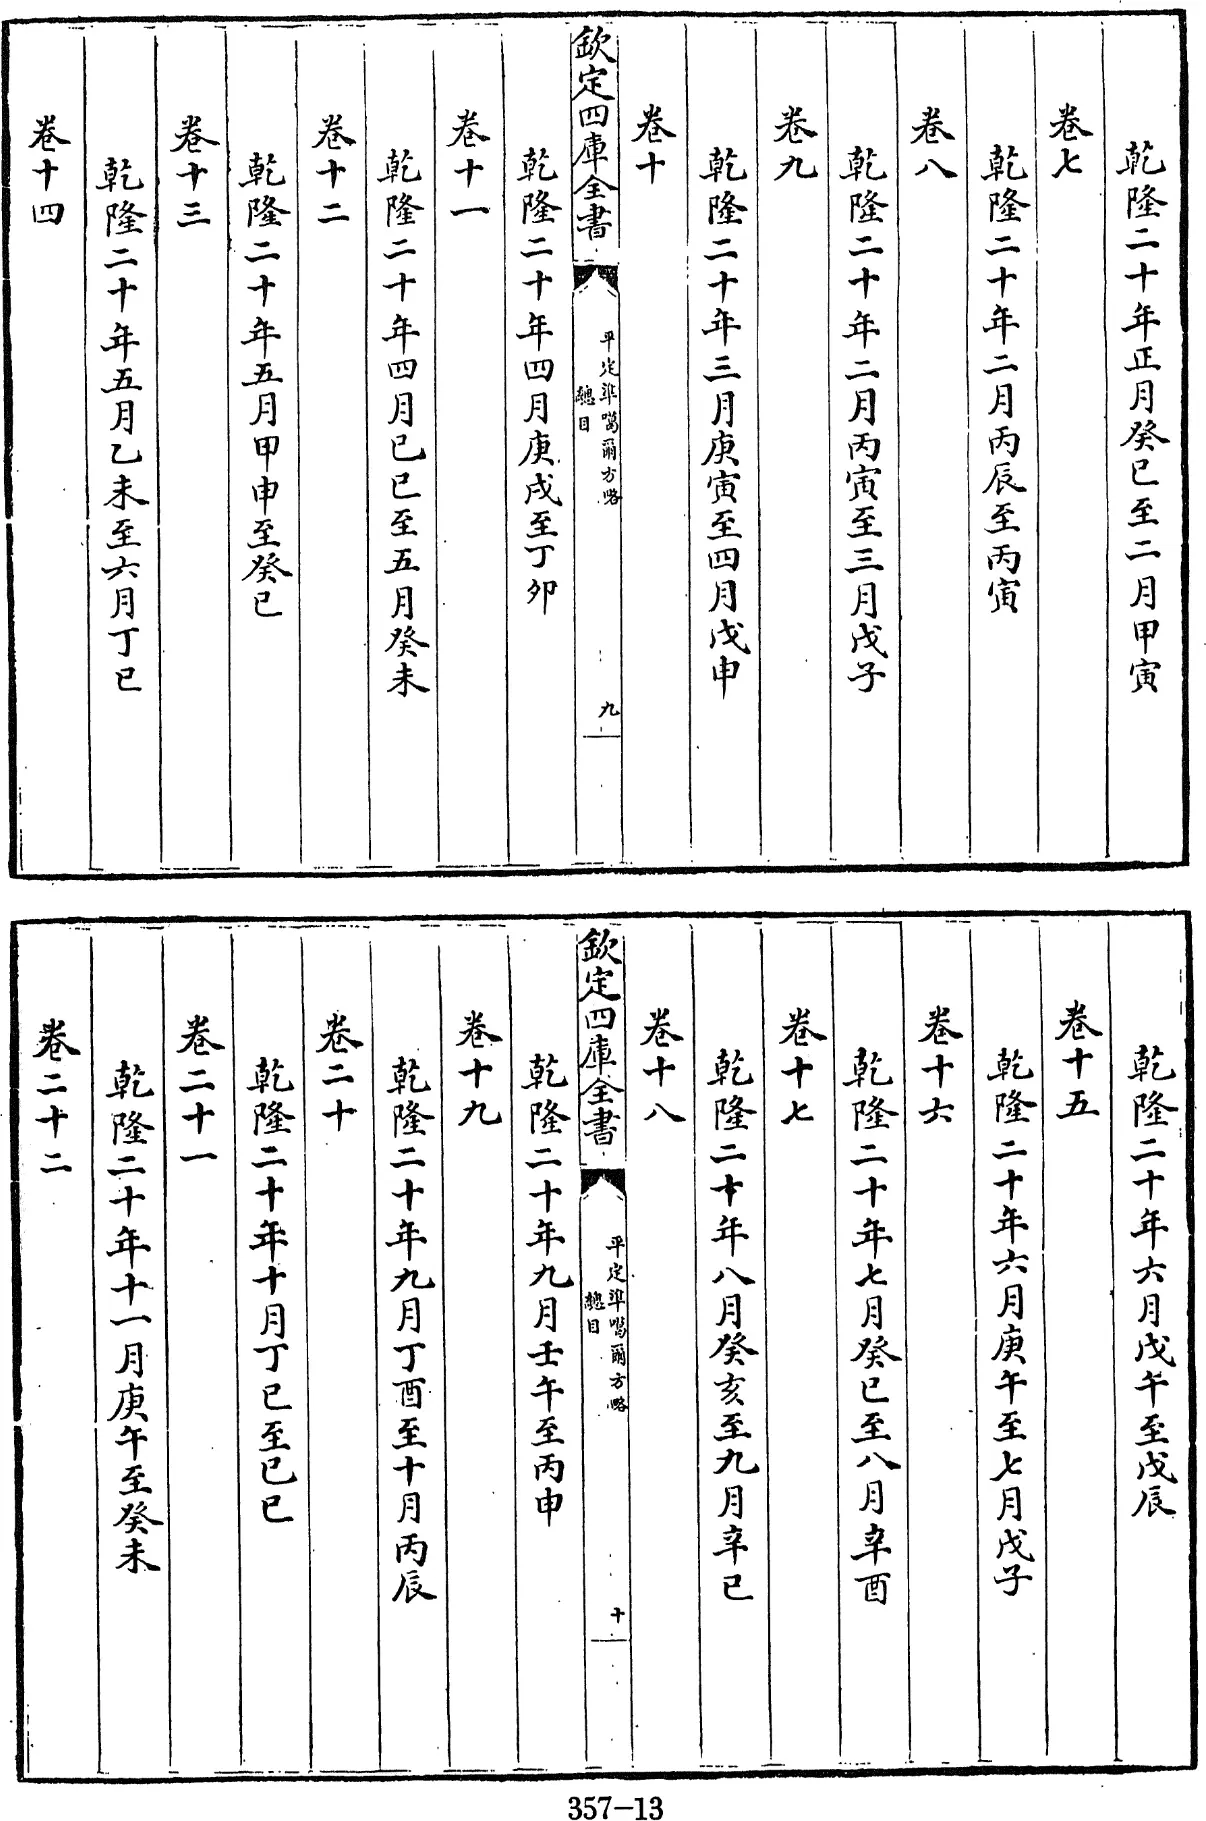 乾隆二十年正月癸巳至二月甲寅
卷七
乾隆二十年二月丙辰至丙寅
卷八
乾隆二十年二月丙寅至三月戊子
卷九
乾隆二十年三月庚寅至四月戊申
卷十
欽定四庫全書
平定準噶爾方略
總目
九
乾隆二十年四月庚戌至丁卯
卷十一
乾隆二十年四月己巳至五月癸未
卷十二
乾隆二十年五月甲申至癸巳
卷十三
乾隆二十年五月乙未至六月丁巳
卷十四
乾隆二十年六月戊午至戊辰
卷十五
乾隆二十年六月庚午至七月戊子
卷十六
乾隆二十年七月癸巳至八月辛酉
卷十七
乾隆二十年八月癸亥至九月辛巳
卷十八
欽定四庫全書
平定準噶爾方略
總目
十
乾隆二十年九月壬午至丙申
卷十九
乾隆二十年九月丁酉至十月丙辰
卷二十
乾隆二十年十月丁巳至己巳
卷二十一
乾隆二十年十一月庚午至癸未
卷二十二
357-13